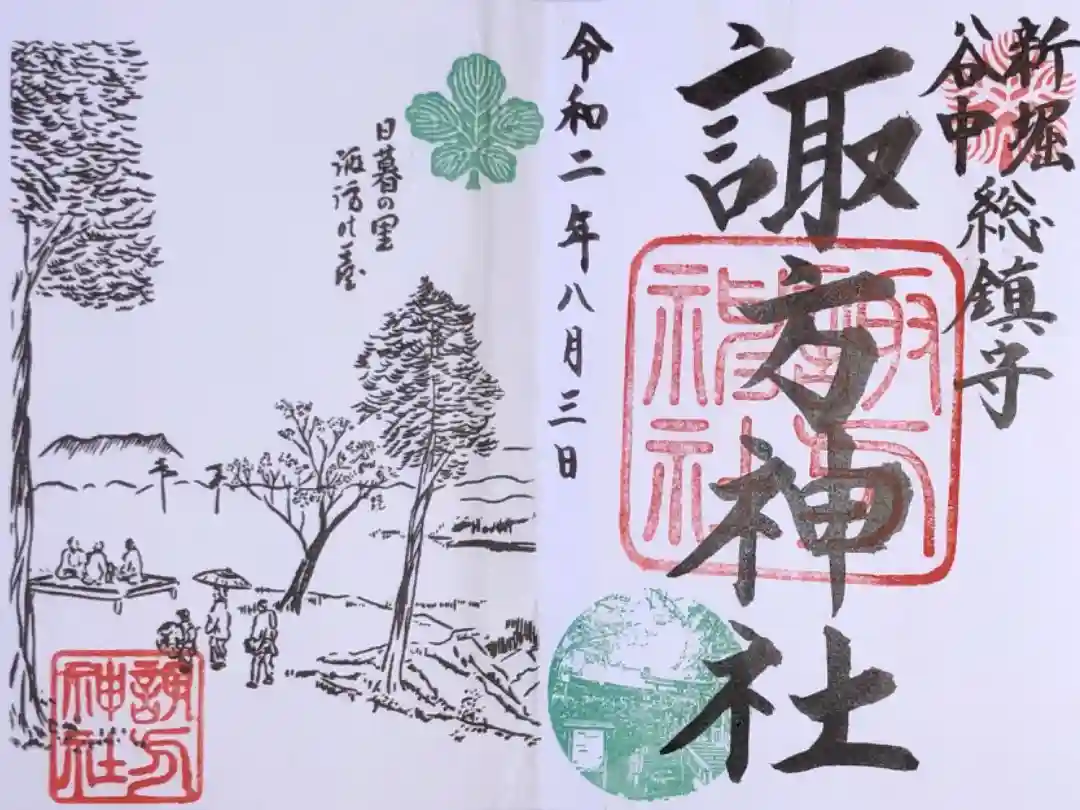 新堀
谷中
総鎮守
諏方神社
諏方
神社
令和二年八月三日
日暮の里
諏訪の臺
諏方
神社